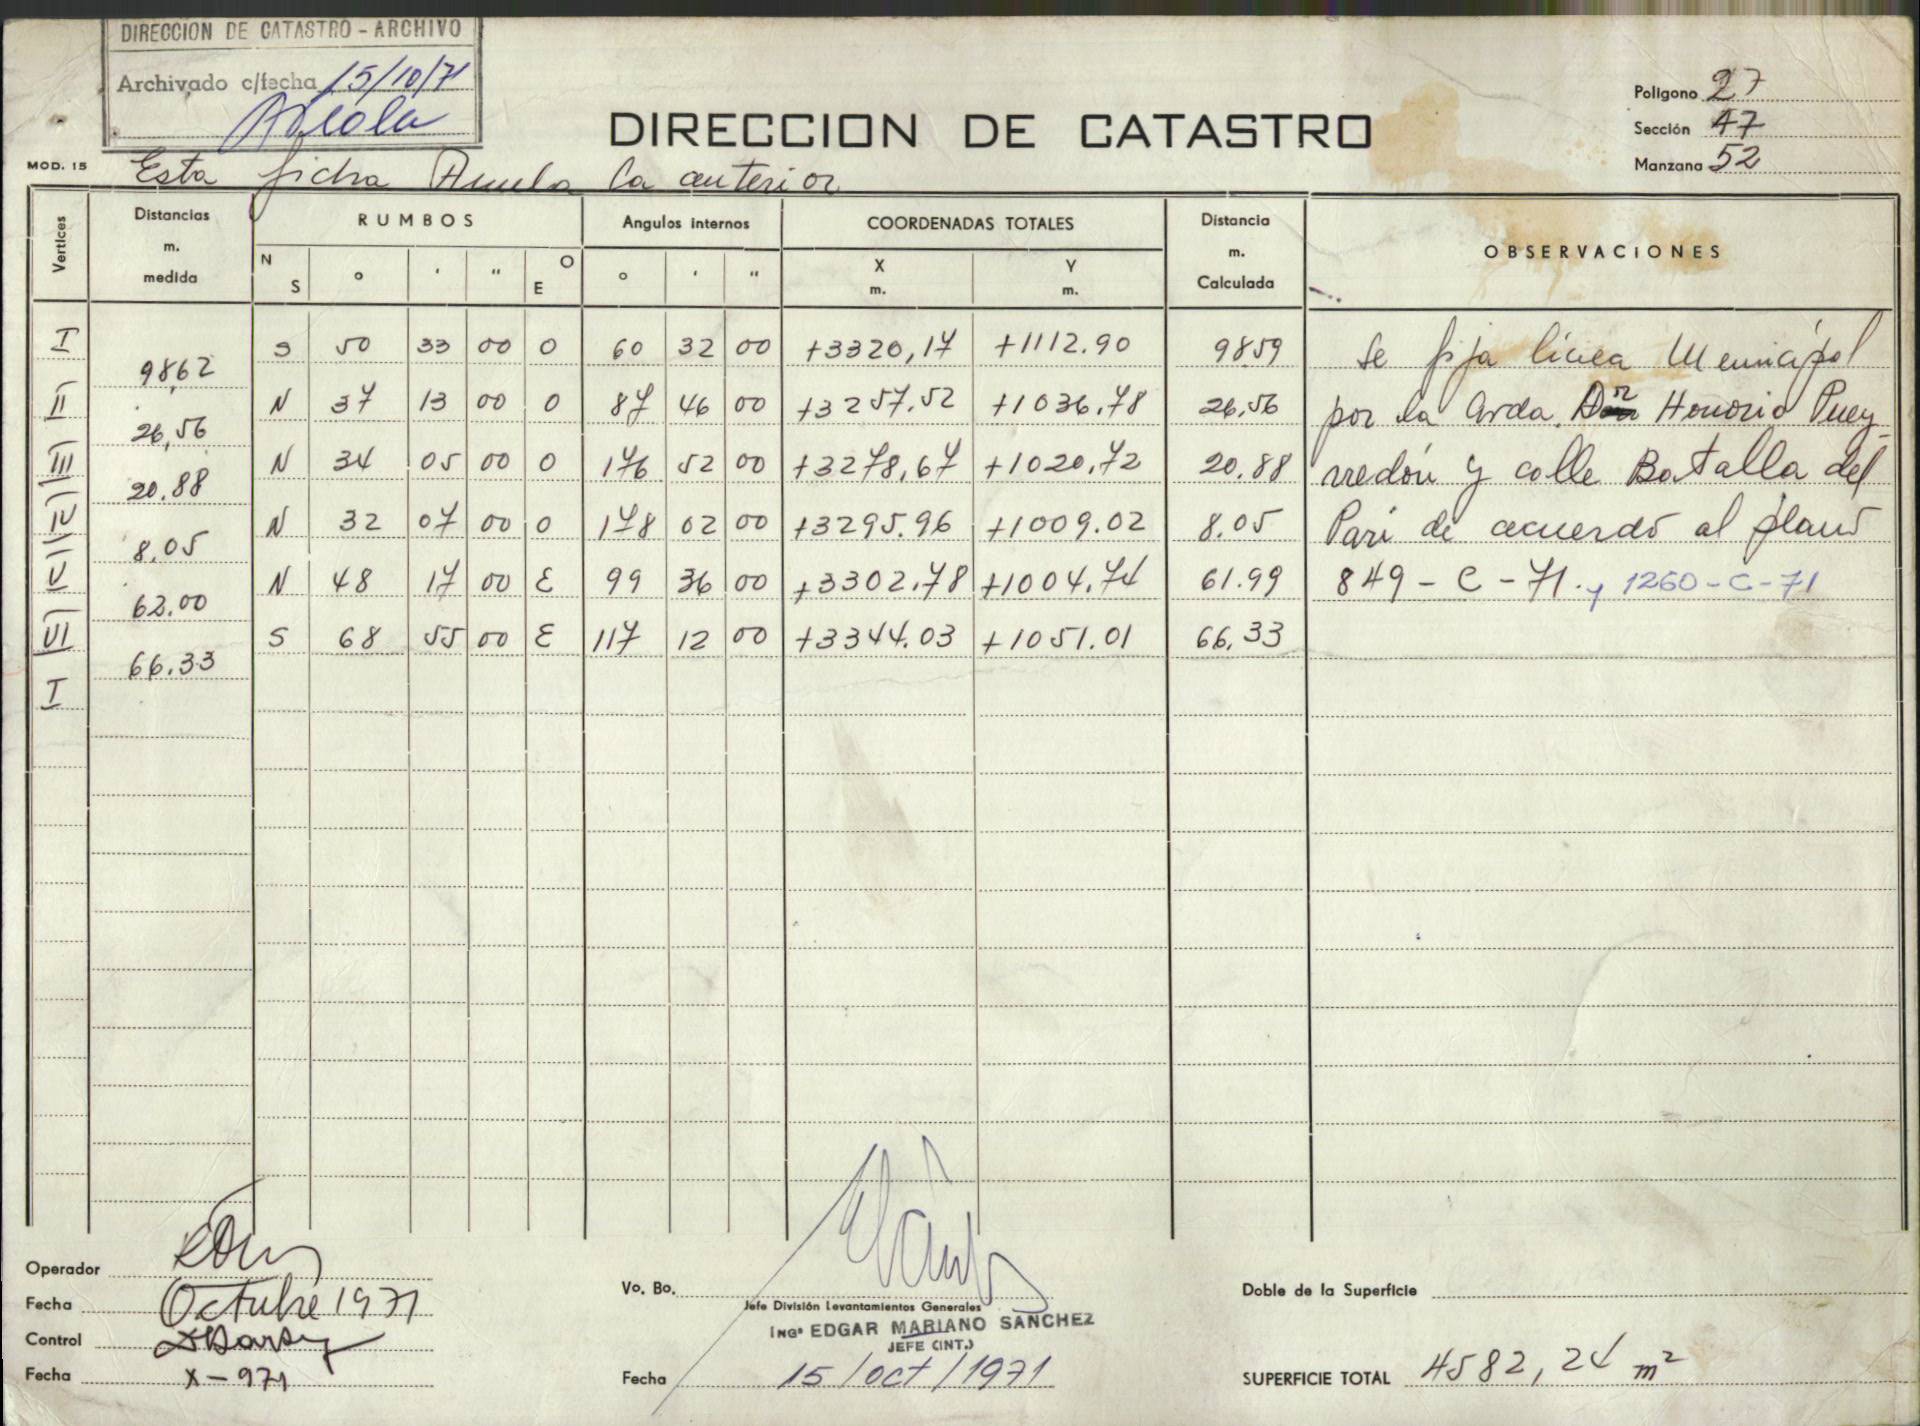 DIRECCION DE CATASTRO - ARCHIVO
Archivado c/fecha 15/10/71
DIRECCION DE CATASTRO
Poligono 27
Sección 47
Manzana 52
MOD. 15
Esta ficha Anula la anterior
Vertices Distancias m. medida RUMBOS Angulos internos COORDENADAS TOTALES Distancia m. Calculada OBSERVACIONES
N S ° ' " O E ° ' " X m. Y m.
I S 50 33 00 O 60 32 00 +3320,17 +1112.90 98.59 Se fija linea Municipal
98,62
II N 37 13 00 O 87 46 00 +3257.52 +1036.78 26,56 por la avda. Dr Honorio Puey
26,56
III N 34 05 00 O 176 52 00 +3278,67 +1020,72 20.88 rredón y calle Batalla del
20.88
IV N 32 07 00 O 178 02 00 +3295.96 +1009.02 8.05 Pari de acuerdo al plano
8.05
V N 48 17 00 E 99 36 00 +3302.78 +1004.74 61.99 849 - C - 71. y 1260-C-71
62.00
VI S 68 55 00 E 117 12 00 +3344.03 +1051.01 66,33
66.33
I
Operador
Fecha Octubre 1971
Control
Fecha X-971
Vo. Bo.
Jefe División Levantamientos Generales
ING° EDGAR MARIANO SANCHEZ
JEFE (INT.)
Fecha 15/oct/1971
Doble de la Superficie
SUPERFICIE TOTAL 4582,24 m²